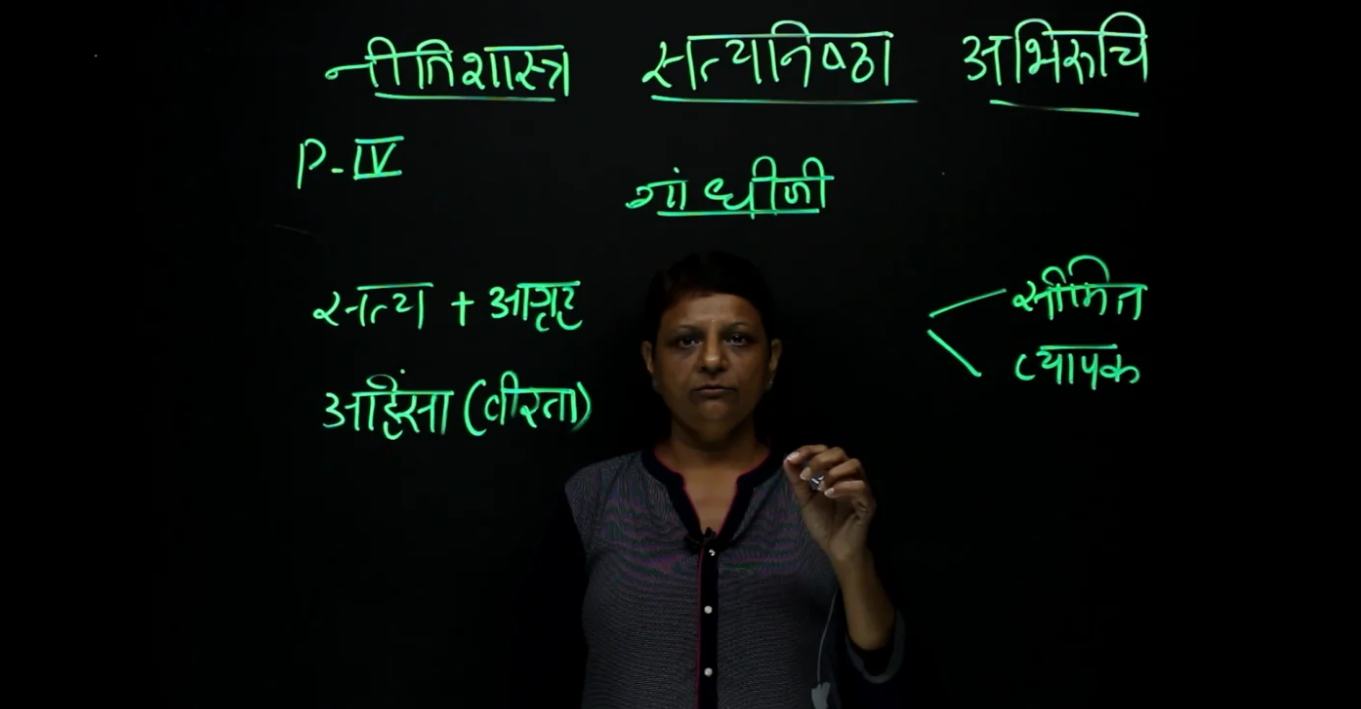 नीतिशास्त्र सत्यनिष्ठा अभिरूचि
P-IV
गांधीजी
सत्य + आग्रह
सीमित
व्यापक
अहिंसा (वीरता)